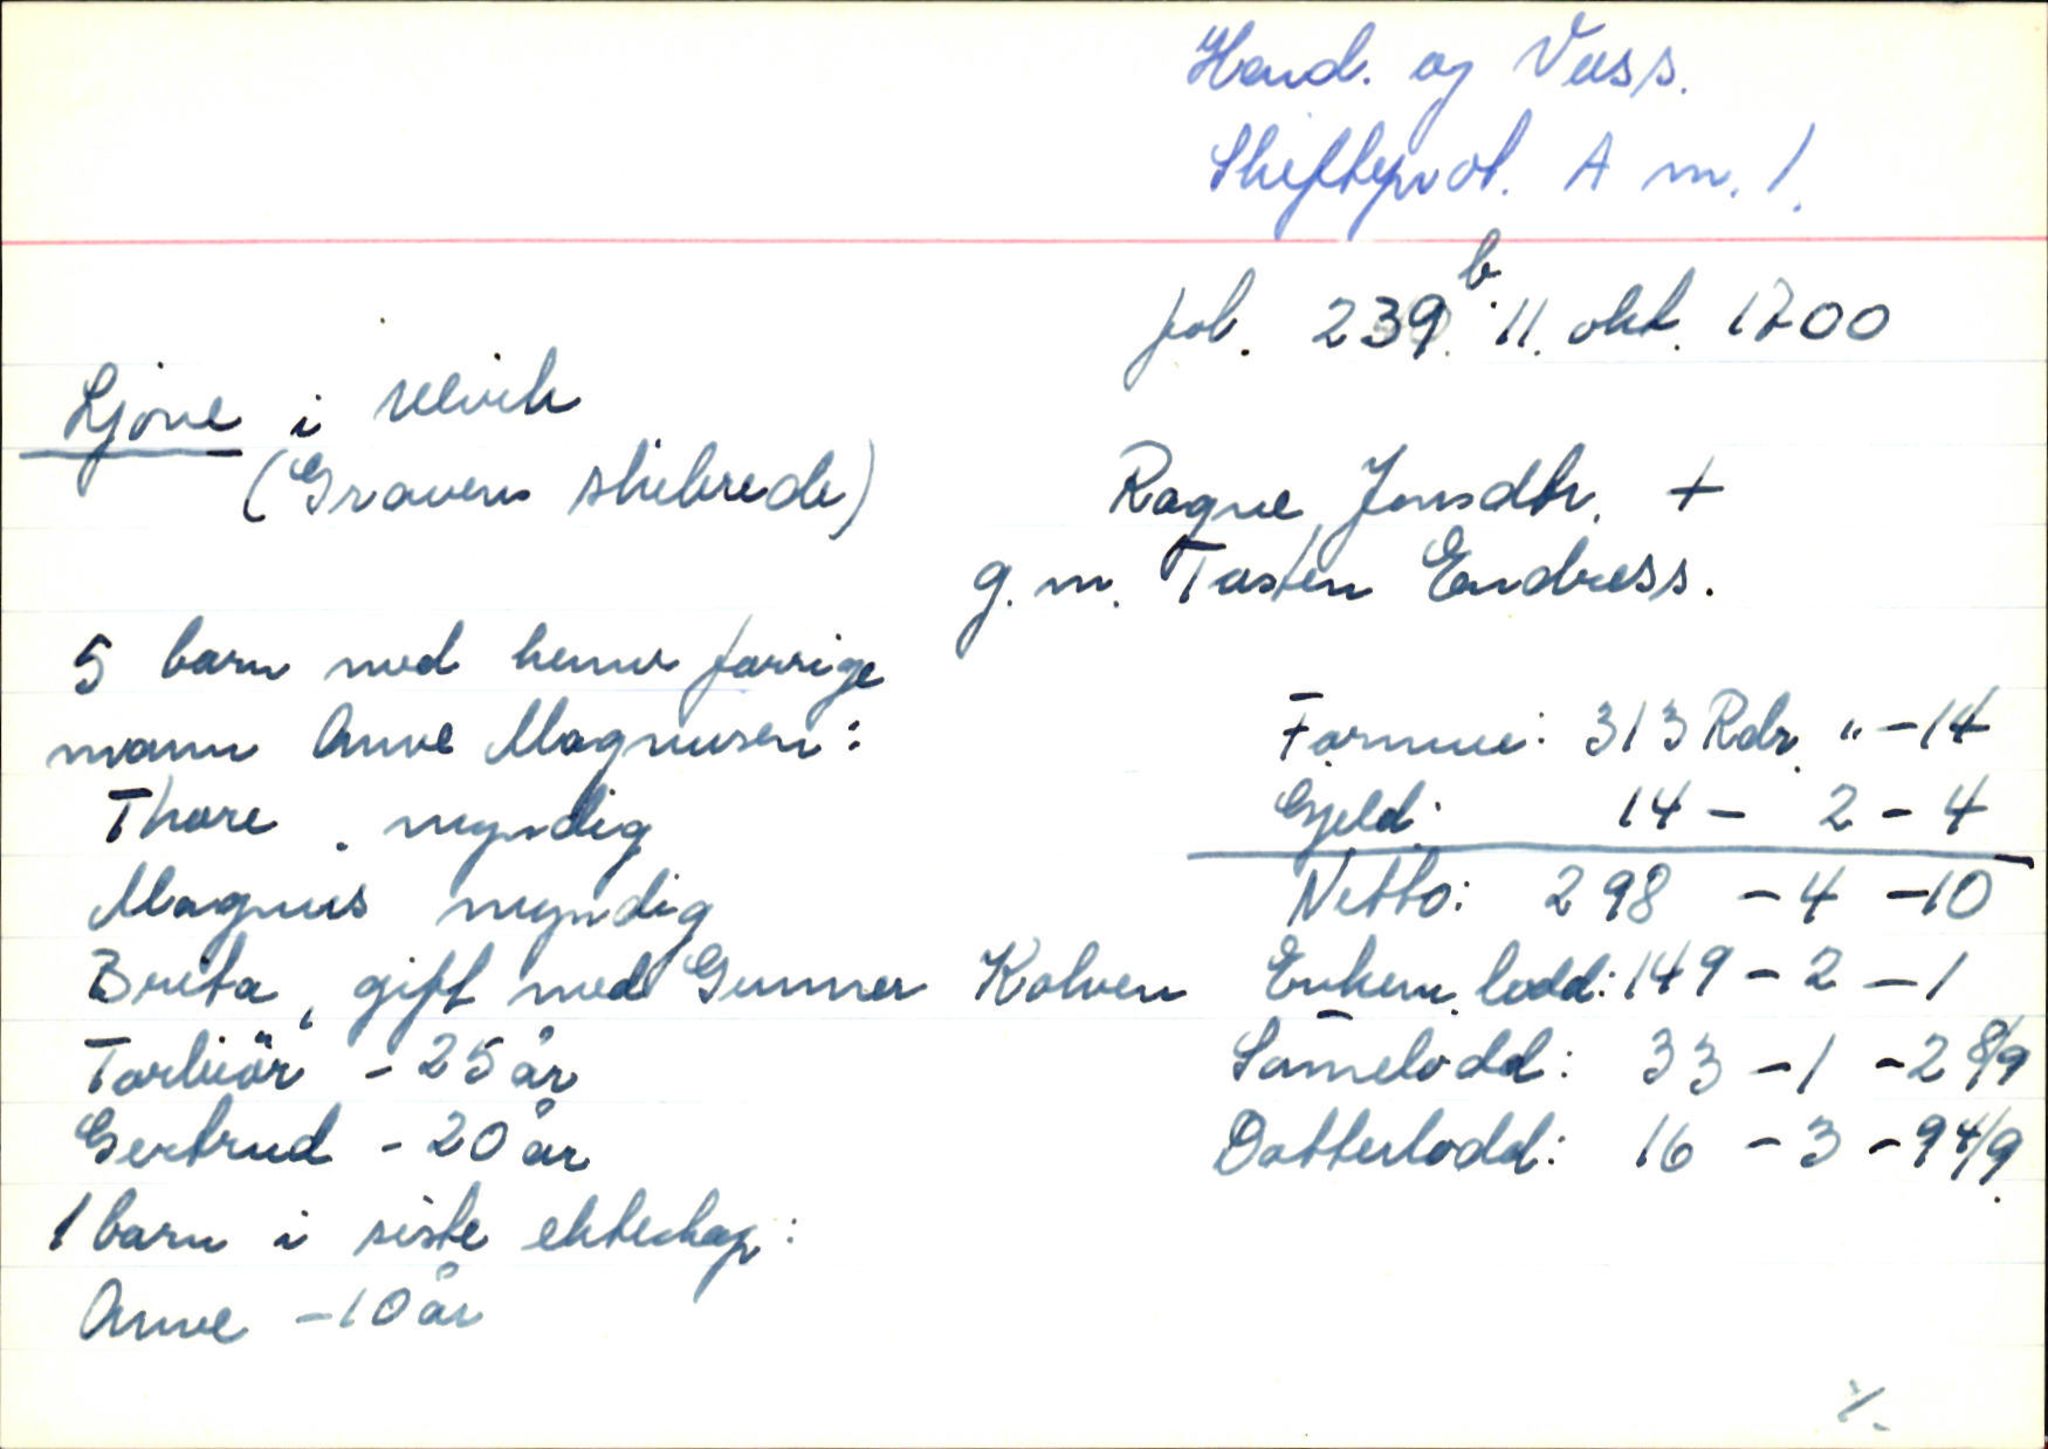 Hard. og Voss.
Skifteprot. A nr. 1.
fol. 239.b 11. okt. 1700
Ljone i Ulvik
(Graven skibrede)
Ragne Jonsdtr. +
g. m. Tosten Endress.
5 barn med hennes forrige
mann Anve Magnusen:
Thore. myndig
Magnus myndig
Brita, gift med Gunner Kolven
Torbiör - 25 år
Gertrud - 20 år
1 barn i siste ekteskap:
Anve - 10 år
Formue: 313 Rdr. " - 14
Gjeld: 14 - 2 - 4
Netto: 298 - 4 - 10
Enkem. lodd: 149 - 2 - 1
Sønnelodd: 33 - 1 - 2 8/9
Datterlodd: 16 - 3 - 9 4/9.